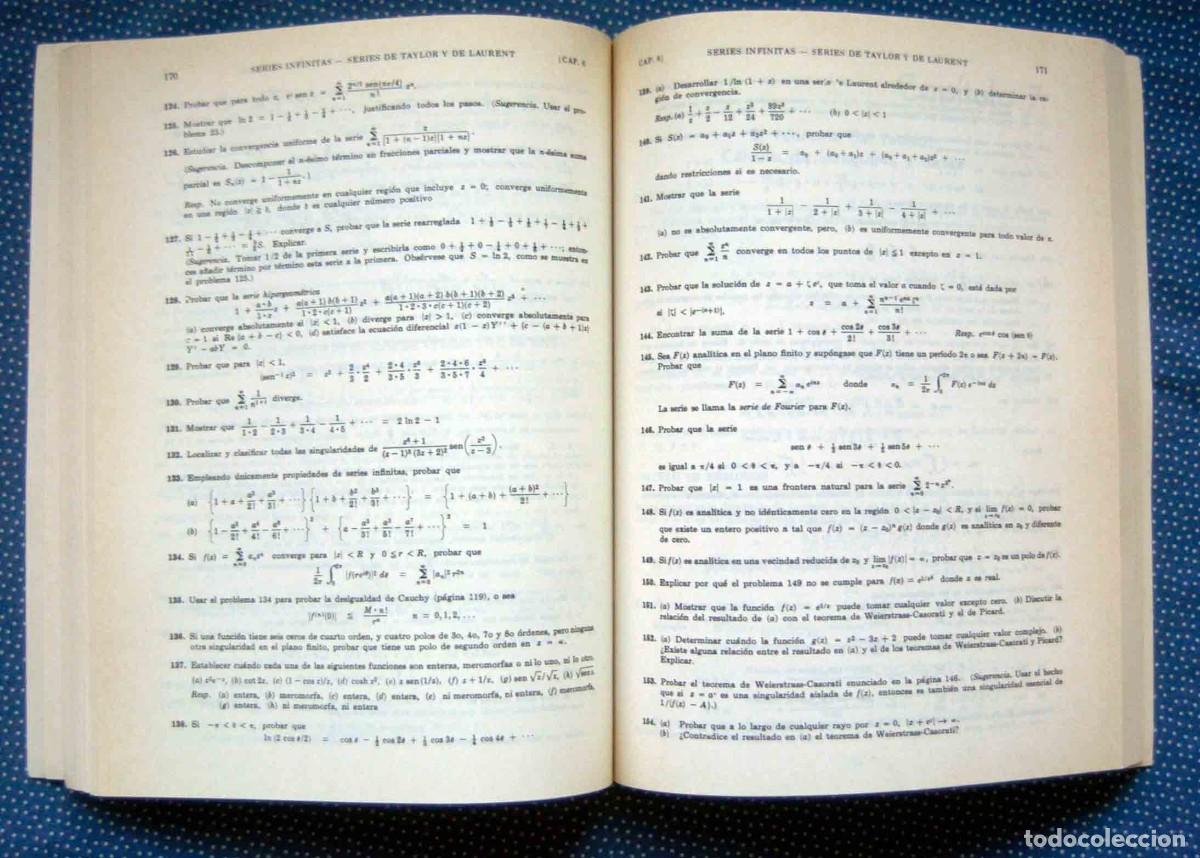 170
SERIES INFINITAS — SERIES DE TAYLOR Y DE LAURENT
[CAP. 6
124. Probar que para todo z, e^z sen z = ∑_{n=1}^∞ 2^{n/2} sen(nπ/4)/n! z^n.
125. Mostrar que ln 2 = 1 − 1/2 + 1/3 − 1/4 + ···, justificando todos los pasos. (Sugerencia. Usar el problema 23.)
126. Estudiar la convergencia uniforme de la serie ∑_{n=1}^∞ z/[1 + (n − 1)z][1 + nz].
(Sugerencia. Descomponer el n-ésimo término en fracciones parciales y mostrar que la n-ésima suma
parcial es S_n(z) = 1 − 1/(1 + nz).]
Resp. No converge uniformemente en cualquier región que incluye z = 0; converge uniformemente
en una región |z| ≧ δ, donde δ es cualquier número positivo
127. Si 1 − 1/2 + 1/3 − 1/4 + ··· converge a S, probar que la serie rearreglada
Explicar.
(Sugerencia. Tomar 1/2 de la primera serie y escribirla como 0 + 1/2 + 0 − 1/4 + 0 + 1/6 + ···; enton-
ces añadir término por término esta serie a la primera. Obsérvese que S = ln 2, como se muestra en
el problema 125.)
128. Probar que la serie hipergeométrica
1 + a·b/1·c z + a(a+1)b(b+1)/1·2·c(c+1) z² + a(a+1)(a+2)b(b+1)(b+2)/1·2·3·c(c+1)(c+2) z³ + ···
(a) converge absolutamente si |z| < 1, (b) diverge para |z| > 1, (c) converge absolutamente para
z = 1 si Re {a + b − c} < 0, (d) satisface la ecuación diferencial z(1 − z)Y'' + {c − (a + b + 1)z}
Y' − abY = 0.
129. Probar que para |z| < 1,
(sen⁻¹ z)² = z² + 2/3 · z⁴/2 + 2·4/3·5 · z⁶/3 + 2·4·6/3·5·7 · z⁸/4 + ···
130. Probar que ∑_{n=1}^∞ 1/n^{1+i} diverge.
131. Mostrar que 1/1·2 − 1/2·3 + 1/3·4 − 1/4·5 + ··· = 2 ln 2 − 1
132. Localizar y clasificar todas las singularidades de (z⁶ + 1)/(z − 1)³(3z + 2)² sen(z²/(z − 3)).
133. Empleando únicamente propiedades de series infinitas, probar que
(a) {1 + a + a²/2! + a³/3! + ···}{1 + b + b²/2! + b³/3! + ···} = {1 + (a + b) + (a + b)²/2! + ···}
(b) {1 − a²/2! + a⁴/4! − a⁶/6! + ···}² + {a − a³/3! + a⁵/5! − a⁷/7! + ···}² = 1
134. Si f(z) = ∑_{n=0}^∞ a_n z^n converge para |z| < R y 0 ≦ r < R, probar que
1/2π ∫_0^{2π} |f(re^{iθ})|² dθ = ∑_{n=0}^∞ |a_n|² r^{2n}
135. Usar el problema 134 para probar la desigualdad de Cauchy (página 119), o sea
|f^{(n)}(0)| ≦ M·n!/r^n n = 0,1,2,...
136. Si una función tiene seis ceros de cuarto orden, y cuatro polos de 3o, 4o, 7o y 8o órdenes, pero ninguna
otra singularidad en el plano finito, probar que tiene un polo de segundo orden en z = ∞.
137. Establecer cuándo cada una de las siguientes funciones son enteras, meromorfas o ni lo uno, ni lo otro.
(a) z²e^{−z}, (b) cot 2z, (c) (1 − cos z)/z, (d) cosh z², (e) z sen(1/z), (f) z + 1/z, (g) sen √z/√z, (h) √sen z.
Resp. (a) entera, (b) meromorfa, (c) entera, (d) entera, (e) ni meromorfa, ni entera, (f) meromorfa,
(g) entera, (h) ni meromorfa, ni entera
138. Si −π < θ < π, probar que
ln (2 cos θ/2) = cos θ − 1/2 cos 2θ + 1/3 cos 3θ − 1/4 cos 4θ + ···
CAP. 6]
SERIES INFINITAS — SERIES DE TAYLOR Y DE LAURENT
171
139. (a) Desarrollar 1/ln (1 + z) en una serie de Laurent alrededor de z = 0, y (b) determinar la re-
gión de convergencia.
Resp. (a) 1/z + 1/2 − z/12 + z²/24 + ··· (b) 0 < |z| < 1
140. Si S(z) = a₀ + a₁z + a₂z² + ···, probar que
S(z)/(1 − z) = a₀ + (a₀ + a₁)z + (a₀ + a₁ + a₂)z² + ···
dando restricciones si es necesario.
141. Mostrar que la serie
1/(1 + |z|) − 1/(2 + |z|) + 1/(3 + |z|) − 1/(4 + |z|) + ···
(a) no es absolutamente convergente, pero, (b) es uniformemente convergente para todo valor de z.
142. Probar que ∑_{n=1}^∞ z^n/n converge en todos los puntos de |z| ≦ 1 excepto en z = 1.
143. Probar que la solución de z = a + ζe^z, que toma el valor a cuando ζ = 0, está dada por
z = a + ∑_{n=1}^∞ n^{n−1} e^{na} ζ^n/n!
si |ζ| < |e^{−(a+1)}|.
144. Encontrar la suma de la serie 1 + cos θ + cos 2θ/2! + cos 3θ/3! + ··· Resp. e^{cos θ} cos (sen θ)
145. Sea F(z) analítica en el plano finito y supóngase que F(z) tiene un período 2π o sea F(z + 2π) = F(z).
Probar que
F(z) = ∑_{n=−∞}^∞ α_n e^{inz} donde α_n = 1/2π ∫_0^{2π} F(z) e^{−inz} dz
La serie se llama la serie de Fourier para F(z).
146. Probar que la serie
sen θ + 1/3 sen 3θ + 1/5 sen 5θ + ···
es igual a π/4 si 0 < θ < π, y a −π/4 si −π < θ < 0.
147. Probar que |z| = 1 es una frontera natural para la serie
148. Si f(z) es analítica y no idénticamente cero en la región 0 < |z − z₀| < R, y si lim_{z→z₀} f(z) = 0, probar
que existe un entero positivo n tal que f(z) = (z − z₀)^n g(z) donde g(z) es analítica en z₀ y diferente
de cero.
149. Si f(z) es analítica en una vecindad reducida de z₀ y lim_{z→z₀} |f(z)| = ∞, probar que z = z₀ es un polo de f(z).
150. Explicar por qué el problema 149 no se cumple para f(x) = e^{1/x²} donde x es real.
151. (a) Mostrar que la función f(z) = e^{1/z} puede tomar cualquier valor excepto cero. (b) Discutir la
relación del resultado de (a) con el teorema de Weierstrass-Casorati y el de Picard.
152. (a) Determinar cuándo la función g(z) = z² − 3z + 2 puede tomar cualquier valor complejo. (b)
¿Existe alguna relación entre el resultado en (a) y el de los teoremas de Weierstrass-Casorati y Picard?
Explicar.
153. Probar el teorema de Weierstrass-Casorati enunciado en la página 146. (Sugerencia. Usar el hecho
que si z = a es una singularidad aislada de f(z), entonces es también una singularidad esencial de
1/{f(z) − A}.)
154. (a) Probar que a lo largo de cualquier rayo por z = 0, |z + e^z| → ∞.
(b) ¿Contradice el resultado en (a) el teorema de Weierstrass-Casorati?
todocoleccion